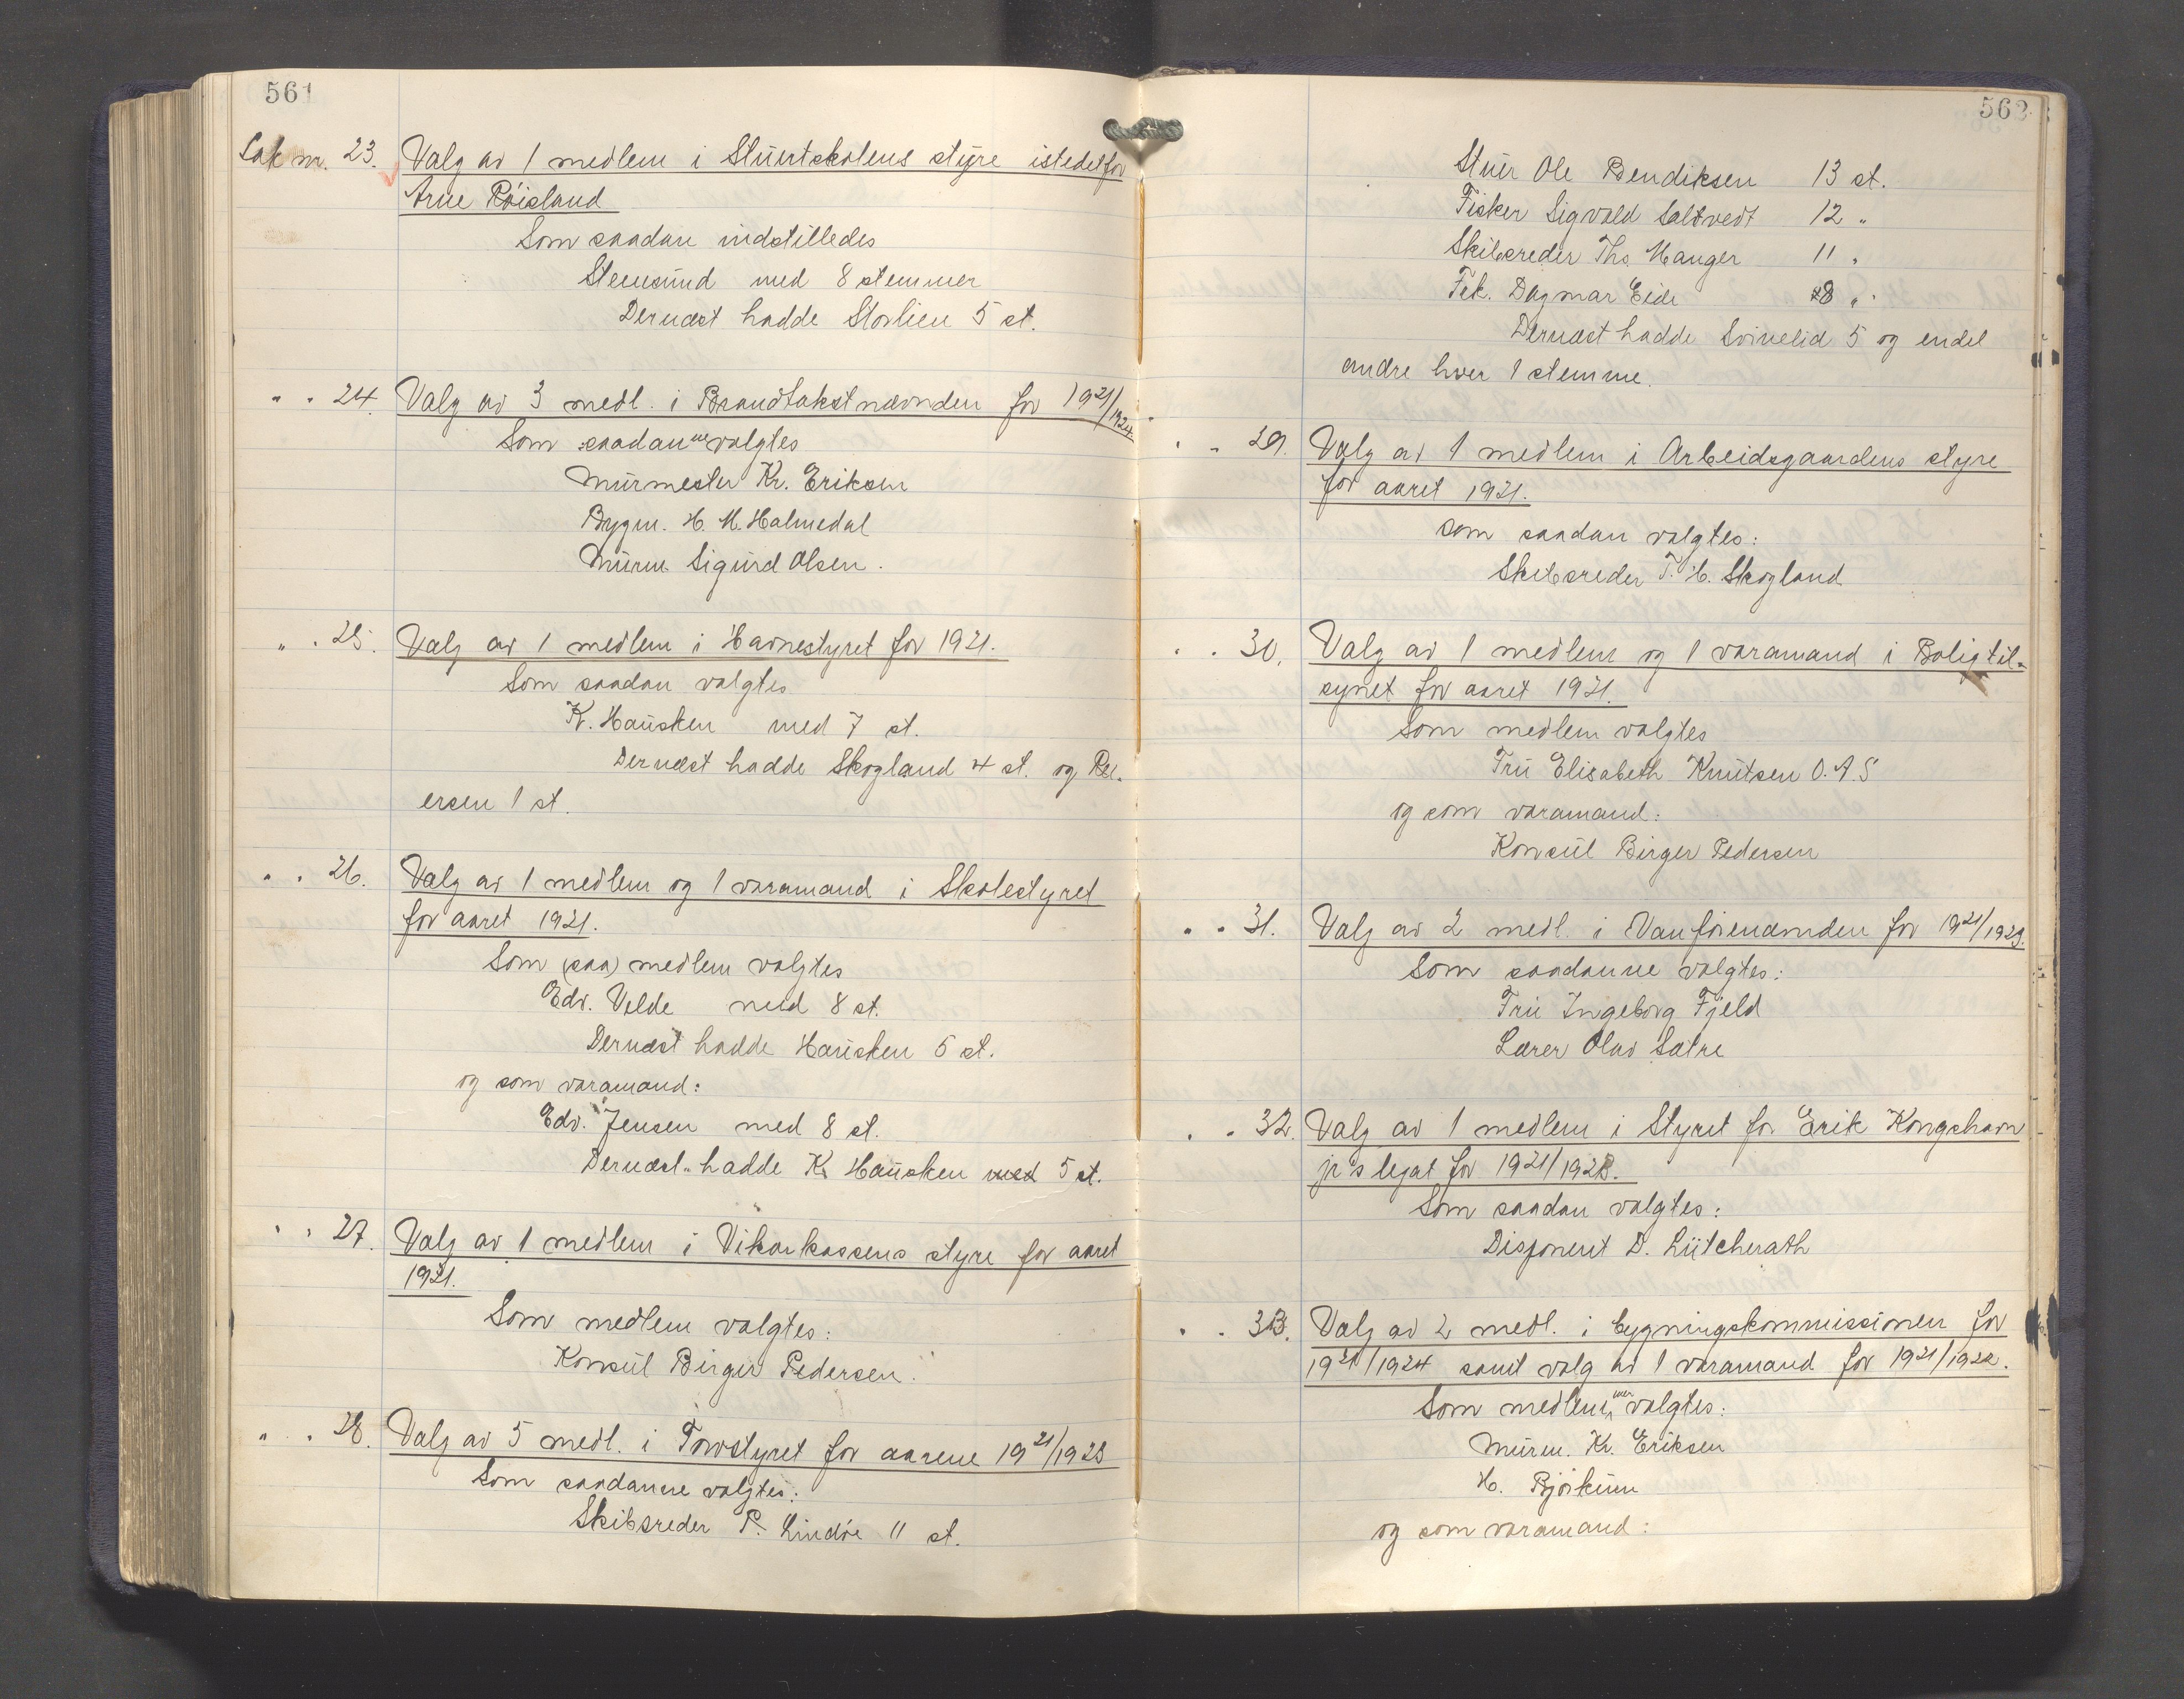 561
Sak nr. 23. Valg av 1 medlem i Stuertskolens styre istedetfor
Arne Røisland
Som saadan indstilledes
Stensund med 8 stemmer
Dernæst hadde Storlien 5 st.
" " 24. Valg av 3 medl. i Brandtakstnævnden for 1921/1924.
Som saadanne valgtes
Murmester Kr. Eriksen
Bygm. H. M. Halmedal
Murm. Sigurd Olsen.
" " 25. Valg av 1 medlem i Havnestyret for 1921.
Som saadan valgtes
K. Hausken med 7 st.
Dernæst hadde Skogland 4 st. og
ersen 1 st.
" " 26. Valg av 1 medlem og 1 varamand i Skolestyret
for aaret 1921.
Som (saa) medlem valgtes
Edv. Velde med 8 st.
Dernæst hadde Hausken 5 st.
og som varamand:
Edv. Jensen med 8 st.
Dernæst hadde K. Hausken med 5 st.
" " 27. Valg av 1 medlem i Vikarkassens styre for aaret
1921.
Som medlem valgtes:
Konsul Birger Pedersen.
" " 28. Valg av 5 medl. i Torvstyret for aarene 1921/1923
Som saadanne valgtes:
Skibsreder P. Lindøe 11 st.
562
Stuer Ole Bendiksen 13 st.
Fisker Sigvald Saltvedt 12 "
Skibsreder Ths. Hauger 11 "
Frk. Dagmar Eide 8 "
Dernæst hadde Svinelid 5 og endel
andre hver 1 stemme.
" " 29. Valg av 1 medlem i Arbeidsgaardens styre
for aaret 1921.
Som saadan valgtes:
Skibsreder T. H. Skogland
" " 30. Valg av 1 medlem og 1 varamand i Boligtil-
synet for aaret 1921.
Som medlem valgtes
Fru Elisabeth Knutsen O.A.S
og som varamand:
Konsul Birger Pedersen
" " 31. Valg av 2 medl. i Vanførenævnden for 1921/1923.
Som saadanne valgtes:
Fru Ingeborg Fjeld
Lærer Olav Sætre
" " 32. Valg av 1 medlem i Styret for Erik Kongshavn
jr's legat for 1921/1923.
Som saadan valgtes:
Disponent D. Lütcherath
" " 33. Valg av 2 medl. i bygningskommissionen for
1921/1924 samt valg av 1 varamand for 1921/1922.
Som medlemmer valgtes:
Murm. Kr. Eriksen
H. Bjørkum
og som varamand: